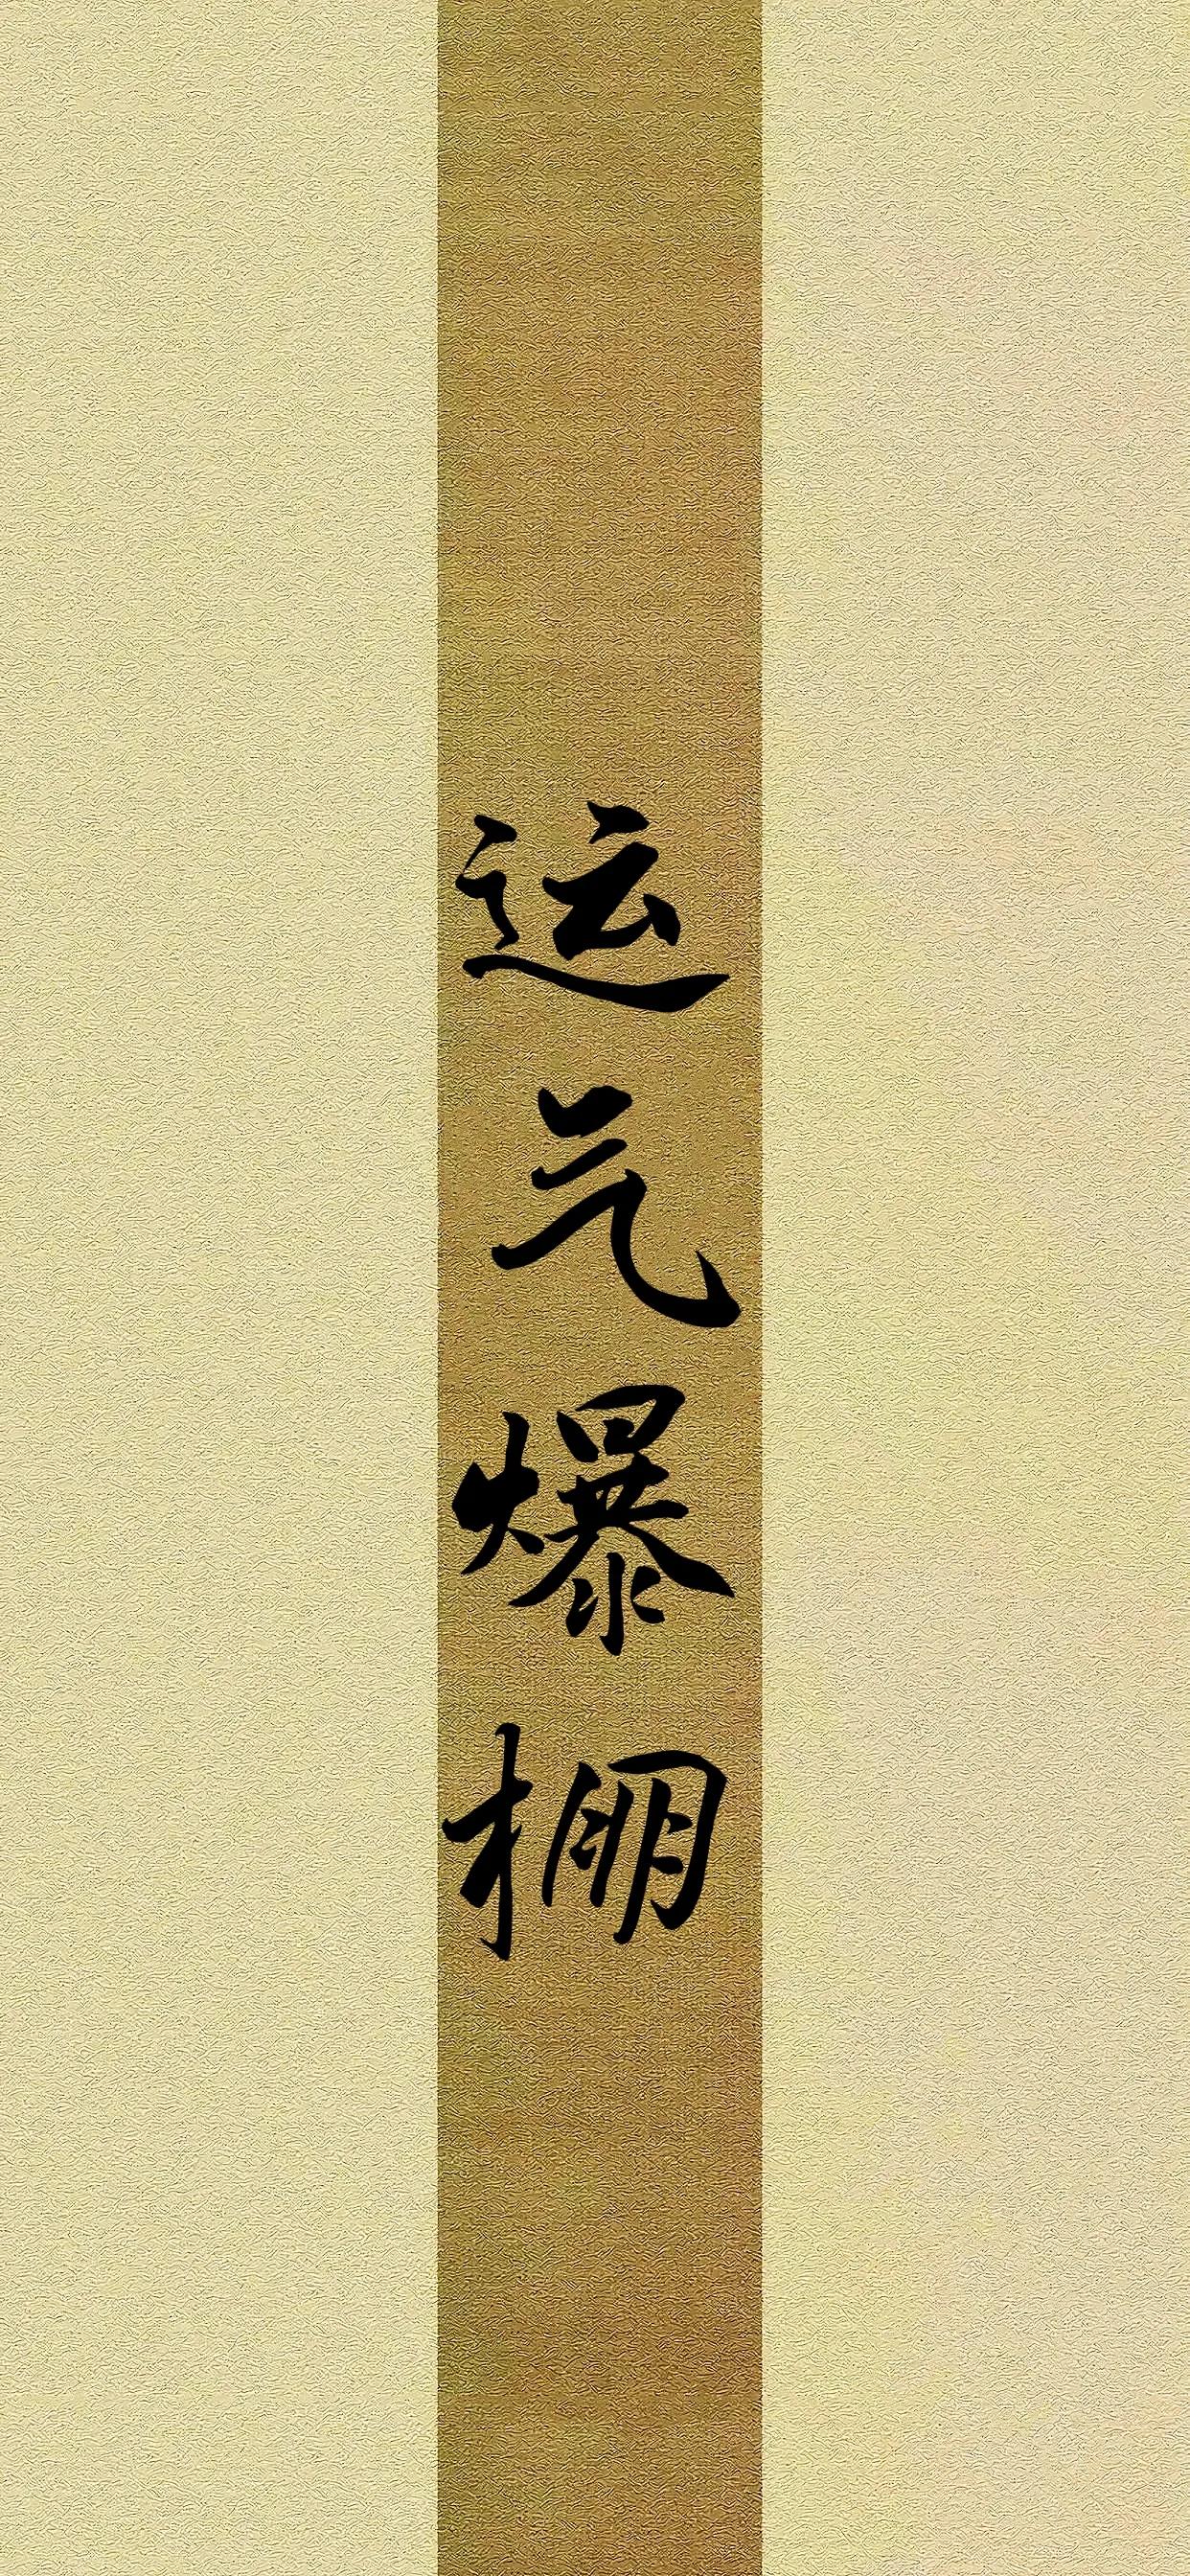 运气爆棚